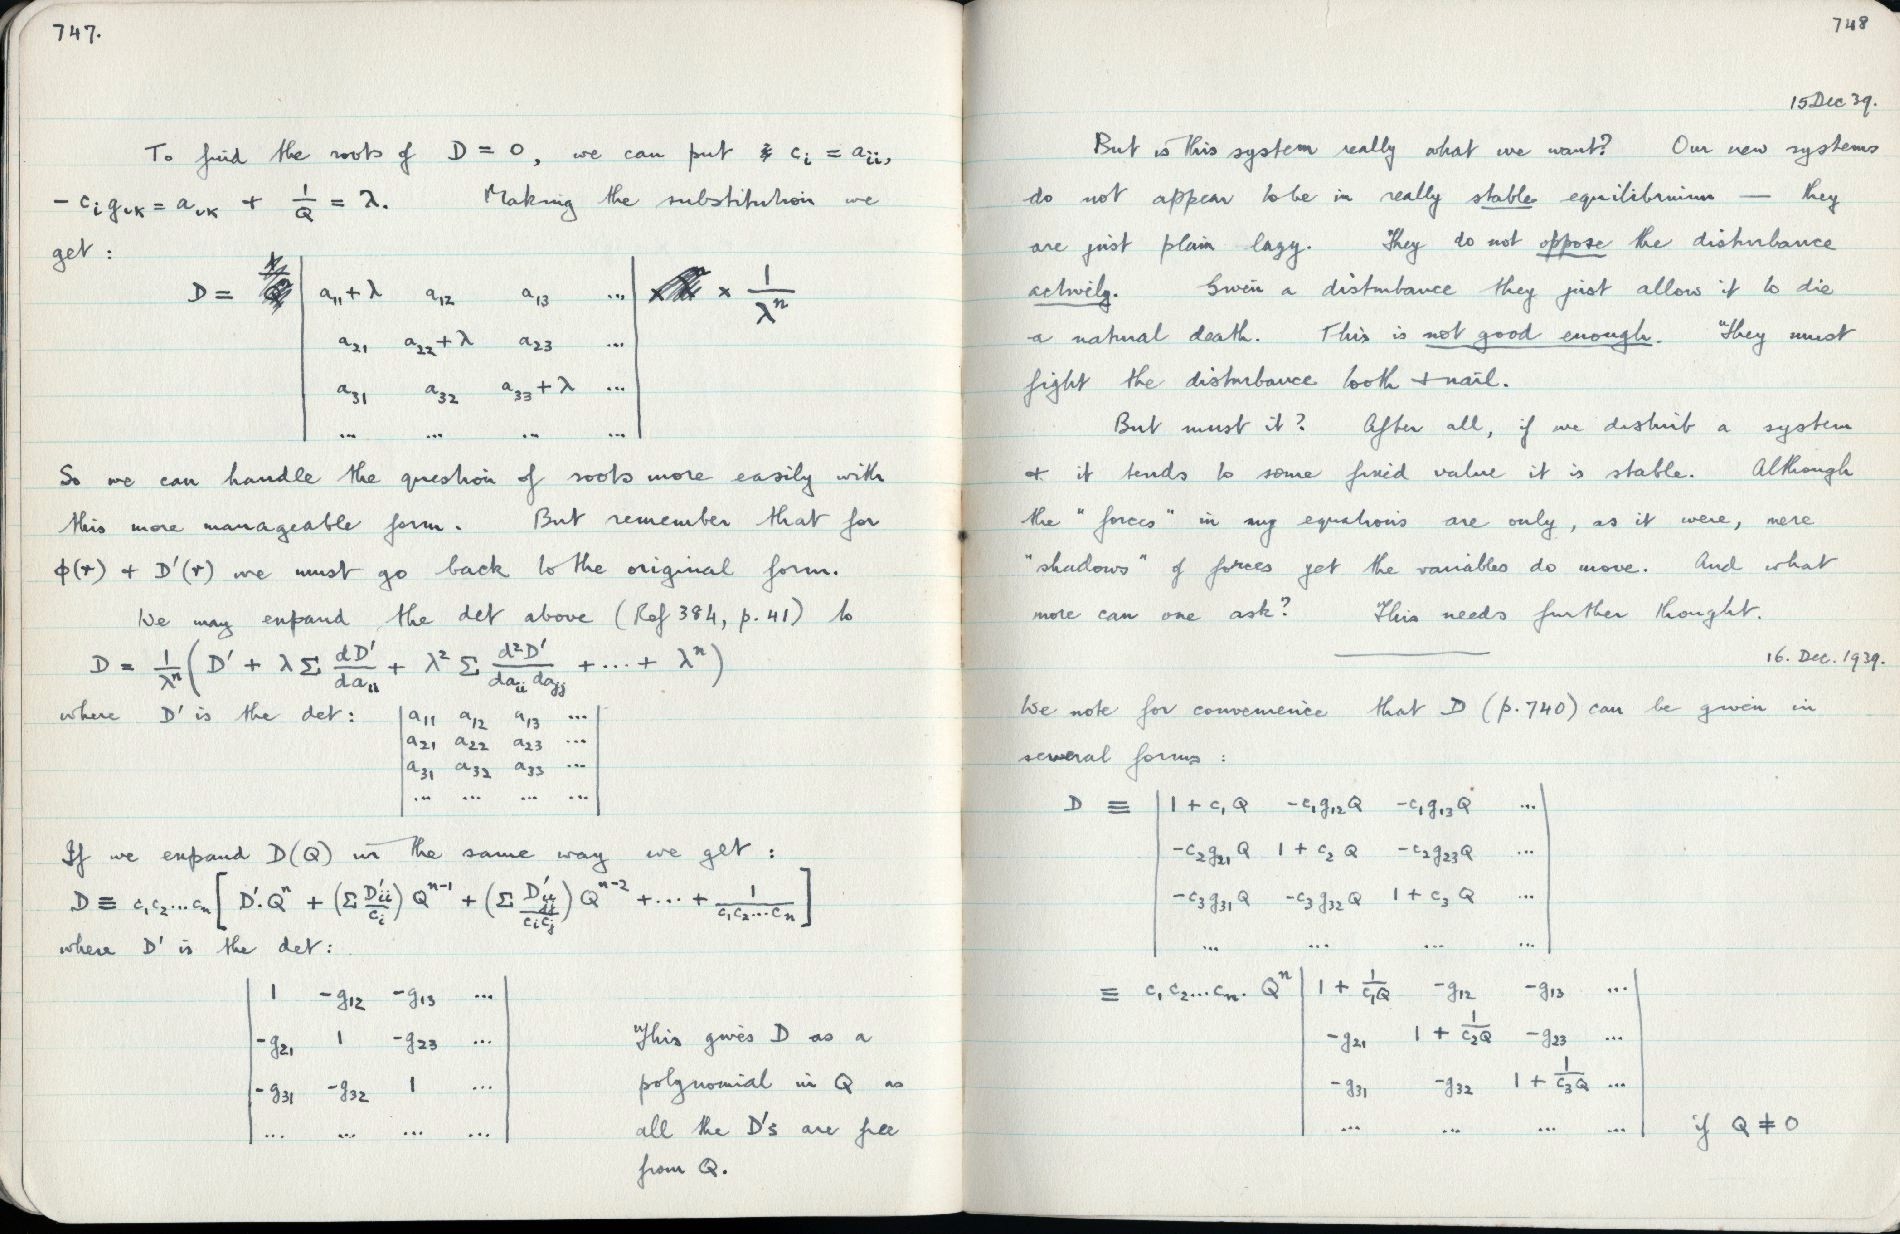 747.
To find the roots of D = 0, we can put c_i = a_ii,
- c_i g_ik = a_ik + 1/Q = λ. Making the substitution we
get :
D = | a_11 + λ a_12 a_13 ... | × 1/λ^n
a_21 a_22 + λ a_23 ...
a_31 a_32 a_33 + λ ...
... ... ... ...
So we can handle the question of roots more easily with
this more manageable form. But remember that for
φ(r) + D'(r) we must go back to the original form.
We may expand the det above (Ref 384, p. 41) to
D = 1/λ^n ( D' + λ Σ dD'/da_ii + λ^2 Σ d^2D'/da_ii da_jj + ... + λ^n )
where D' is the det : | a_11 a_12 a_13 ... |
a_21 a_22 a_23 ...
a_31 a_32 a_33 ...
... ... ... ...
If we expand D(Q) in the same way we get :
D ≡ c_1 c_2 ... c_n [ D'. Q^n + (Σ D'_ii/c_i) Q^n-1 + (Σ D'_ii jj/c_i c_j) Q^n-2 + ... + 1/c_1 c_2 ... c_n ]
where D' is the det :
| 1 -g_12 -g_13 ... |
-g_21 1 -g_23 ...
-g_31 -g_32 1 ...
... ... ... ...
This gives D as a
polynomial in Q as
all the D's are free
from Q.
748
15 Dec 39.
But is this system really what we want? Our new systems
do not appear to be in really stable equilibrium — they
are just plain lazy. They do not oppose the disturbance
actively. Given a disturbance they just allow it to die
a natural death. This is not good enough. They must
fight the disturbance tooth + nail.
But must it? After all, if we disturb a system
+ it tends to some fixed value it is stable. Although
the "forces" in my equations are only, as it were, mere
"shadows" of forces yet the variables do move. And what
more can one ask? This needs further thought.
16. Dec. 1939.
We note for convenience that D (p. 740) can be given in
several forms :
D ≡ | 1 + c_1 Q -c_1 g_12 Q -c_1 g_13 Q ... |
-c_2 g_21 Q 1 + c_2 Q -c_2 g_23 Q ...
-c_3 g_31 Q -c_3 g_32 Q 1 + c_3 Q ...
... ... ... ...
≡ c_1 c_2 ... c_n . Q^n | 1 + 1/c_1 Q -g_12 -g_13 ... |
-g_21 1 + 1/c_2 Q -g_23 ...
-g_31 -g_32 1 + 1/c_3 Q ...
... ... ... ...
if Q ≠ 0